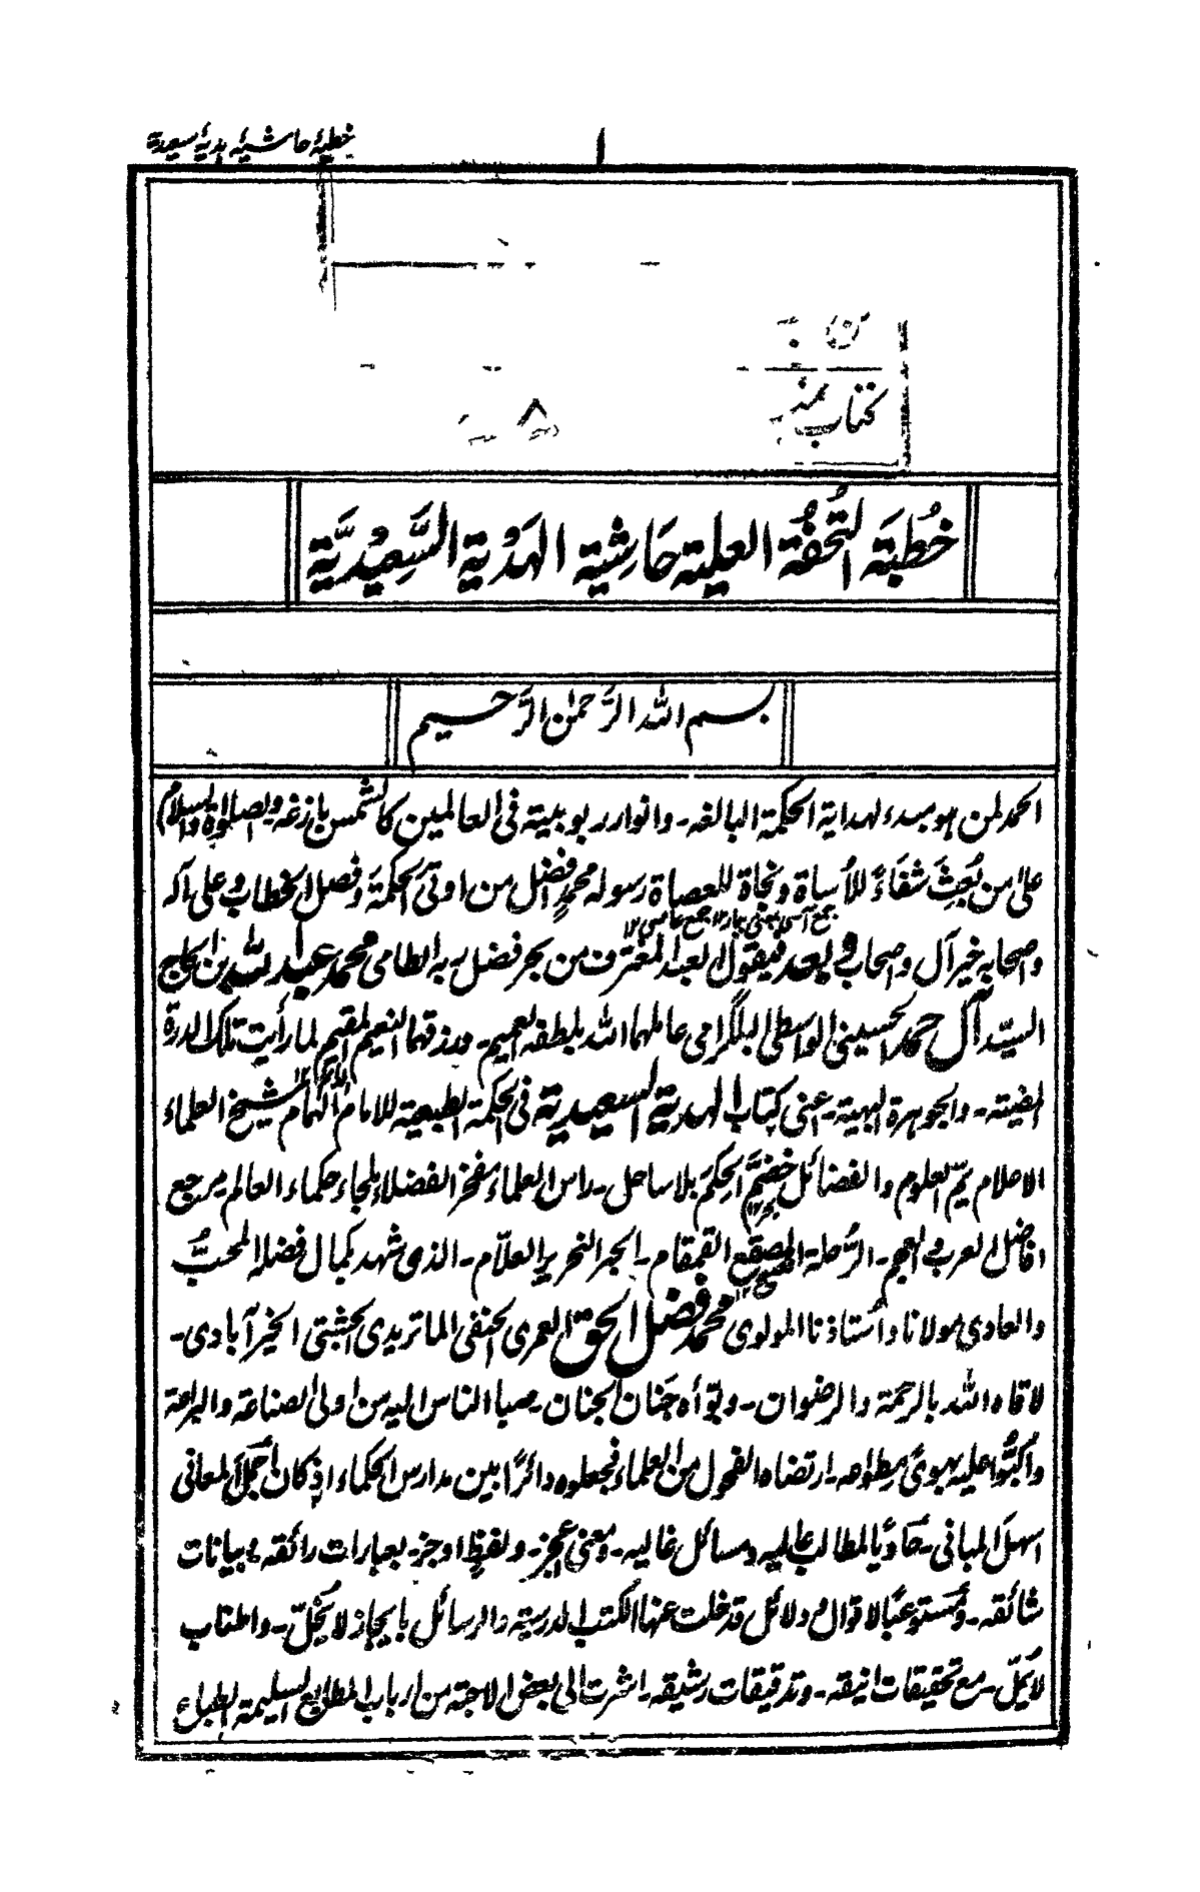 خطبۂ حاشیۂ ہدیۂ سعیدیۃ
۱
کتاب نمبر
خُطبَة التُّحفُة العلية حَاشِية الهَدْية السَّعِيْديَّة
بسم الله الرَّحمٰن الرَّحيم
الحمد لمن هو مبدء لهداية الحكمة البالغه ـ وانوار ربوبيته فى العالمين كالشمس بازغه والصلوة والسلام
علىٰ من بُعِثَ شفَاءً للأُساة ونجاة للعصاة رسوله محمدٍ افضل من اوتى الحكمةَ وفصل الخطاب وعلى آله
جمع آسى بمعنى بيمار ۱۲ جمع عاصى ۱۲
واصحابه خير آل واصحاب وبعد فيقول العبد المغترف من بحر فضل ربه الطامى محمد عبد الله بن الحاج
السيّد آل احمد الحسينى الواسطى البلگرامى عاملهما الله بلطفه العميم ـ ورزقهما النعيم المقيم لما رأيت تلك الدرة
المضيئه ـ والجوهرة البهية ـ اعنى كتاب الهدية السعيدية فى الحكمة الطبعية للامام الهمام شيخ العلماء
الاعلام يمّ العلوم والفضائل خضمّ الحِكَم بلا ساحل ـ راس العلماء مفخر الفضلاء ملجاء حكماء العالم مرجع
بحر ۱۲
افاضل العرب والعجم ـ الرُّحلة المصقع القمقام ـ الحبر النحرير العلّام ـ الذى شهد بكمال فضله المحبُّ
الفصيح ۱۲
والعادى مولانا واُستاذنا المولوى محمد فضل الحق العمرى الحنفى الماتريدى الچشتى الخيرآبادى ـ
لاقاه الله بالرحمة والرضوان ـ وبوّأه جَنان الجنان ـ صبا الناس اليه من اولى الصناعة والبراعة
وأكبُّوا عليه بهوىً مِطواعه ـ ارتضاه الفحول من العلماء فجعلوه دائرًا بين مدارس الحكماء اذ كان اجَلَّ المعانى
اسهلَ المبانى ـ حَاويًا لمطالب عاليه ومسائل غاليه ـ ومعنى اعجز ـ ولفظٍ اوجز ـ بعبارات رائقه وبيانات
شائقه ـ ومُستوعبًا لاقوال ودلائل قد خلت عنها الكتب الدرسية والرسائل بايجاز لا يُخلّ ـ واطناب
لا يُمِلّ ـ مع تحقيقات انيقه ـ وتدقيقات رشيقه ـ اشرت الى بعض الاحبة من ارباب الطبايع السليمة الطباء